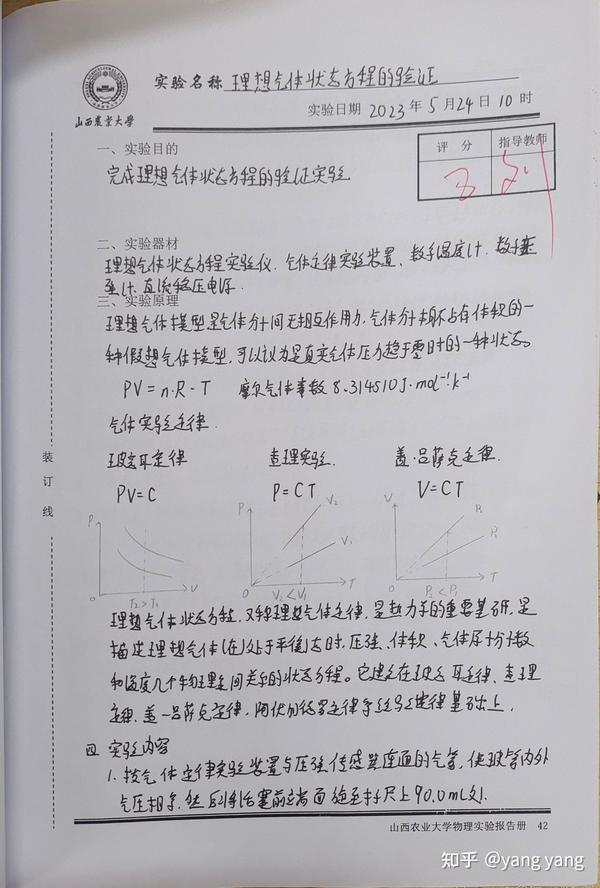 山西农业大学
实验名称 理想气体状态方程的验证
实验日期 2023年5月24日10时
评分 指导教师
一、实验目的
完成理想气体状态方程的验证实验
二、实验器材
理想气体状态方程实验仪、气体定律实验装置、数字温度计、数字压
强计、直流稳压电源
三、实验原理
理想气体模型是气体分子间无相互作用力,气体分子本身不占有体积的一
种假想气体模型,可以认为是真实气体压力趋于零时的一种状态。
PV=n·R·T 摩尔气体常数 8.314510J·mol⁻¹k⁻¹
气体实验定律.
玻意耳定律 查理实验. 盖·吕萨克定律.
PV=C P=CT V=CT
P V O T₂>T₁
P V₂ V₁ T O V₂<V₁
V P₂ P₁ T O P₂<P₁
理想气体状态方程,又称理想气体定律,是热力学的重要基础,是
描述理想气体(在)处于平衡态时,压强、体积、气体
和温度几个物理量之间关系的状态方程。它建立在玻意耳定律、查理
定律、盖-吕萨克定律,阿伏加德罗定律等经验定律基础上.
四 实验内容
1. 按气体定律实验装置与压强传感器连通的气管,使玻管内外
气压相等,然后将活塞前端面 至标尺上90.0mL处.
山西农业大学物理实验报告册 42
装
订
线
知乎 @yang yang